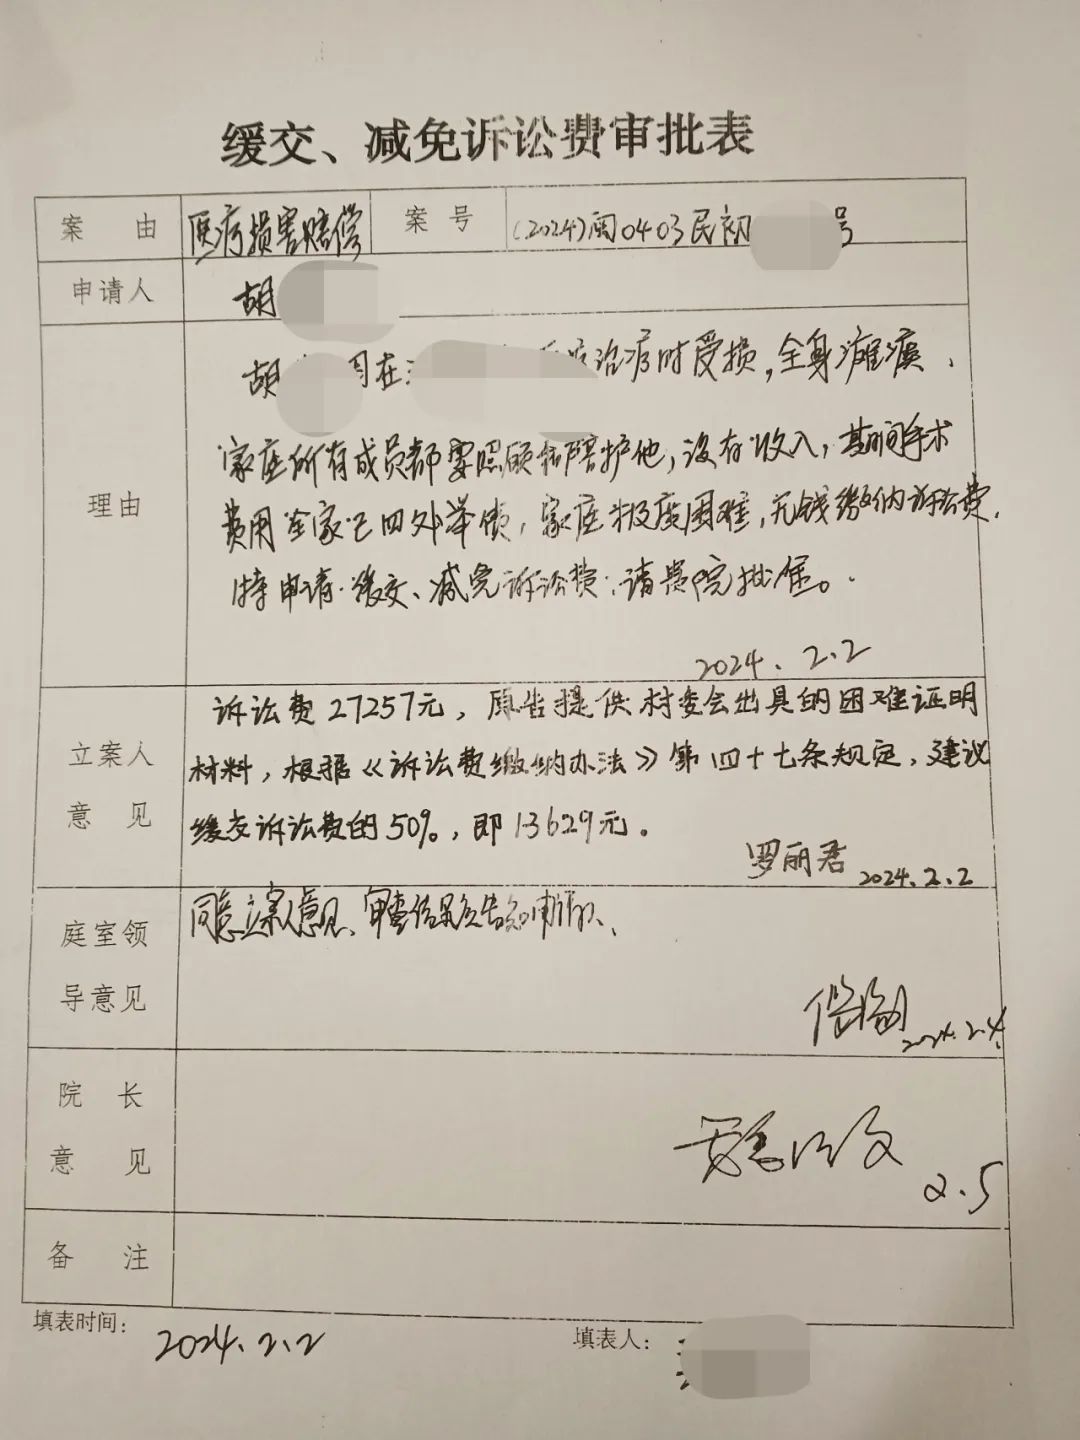 缓交、减免诉讼费审批表
案 由 医疗损害赔偿 案 号 (2024)闽0403民初 号
申请人 胡
胡 因在 治疗时受损,全身瘫痪、
家庭所有成员都要照顾和陪护他,没有收入,期间手术
理由 费用全家已四外举债,家庭极度困难,无钱缴纳诉讼费,
特申请缓交、减免诉讼费,请贵院批准。
2024.2.2
诉讼费27257元,原告提供村委会出具的困难证明
立案人 材料,根据《诉讼费缴纳办法》第四十七条规定,建议
意 见 缓交诉讼费的50%,即13629元。
罗丽君 2024.2.2
同意立案人意见、审查结果应告知申请人、
庭室领
导意见
2024.2.4
院 长
意 见
2.5
备 注
填表时间: 2024.2.2 填表人: